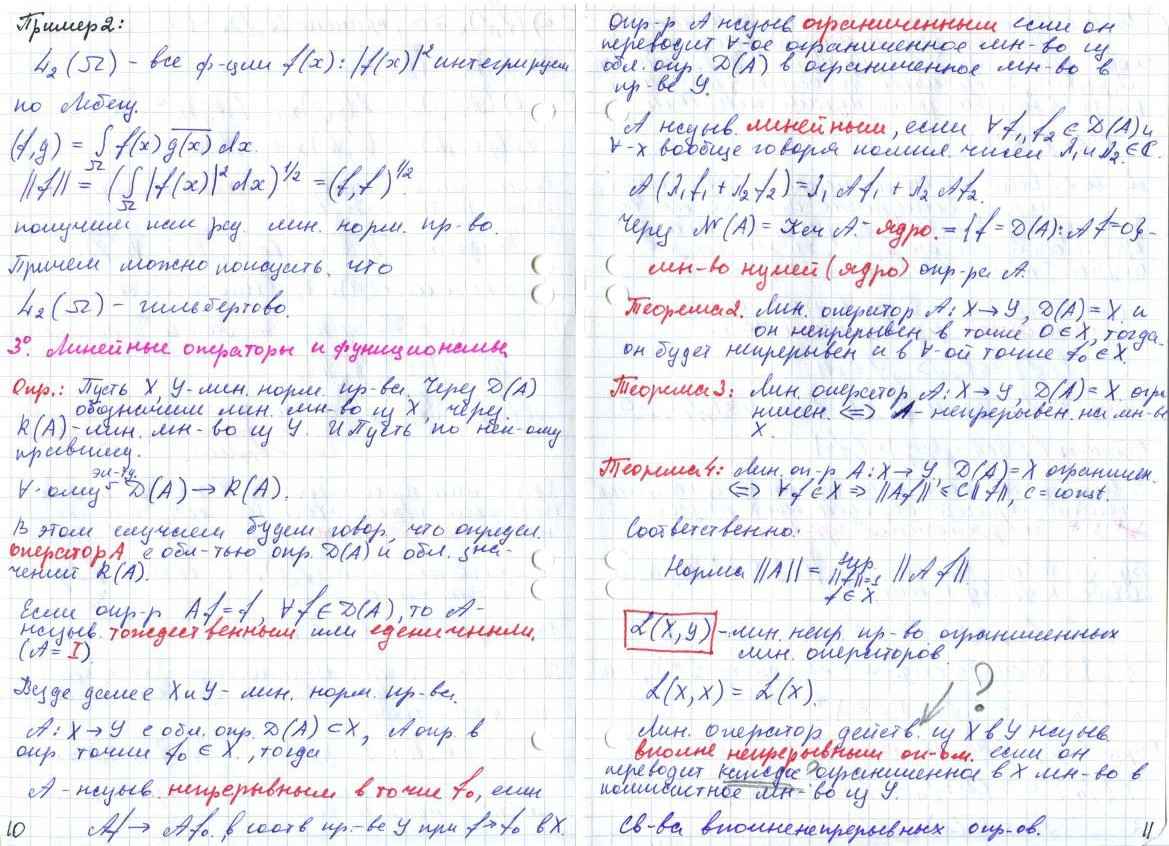 Пример 2:
L₂(Ω) - все ф-ции f(x): |f(x)|² интегрируем
по Лебегу.
(f,g) = ∫_Ω f(x) g̅(̅x̅)̅ dx.
||f|| = (∫_Ω |f(x)|² dx)^{1/2} = (f,f)^{1/2}
получим лин. норм. пр-во.
Причем можно показать, что
L₂(Ω) - гильбертово.
3°. Линейные операторы и функционалы
Опр.: Пусть X, Y - лин. норм. пр-ва. Через D(A)
обозначим лин. мн-во из X, через
R(A) - лин. мн-во из Y. И Пусть по нек-ому
правилу.
∀-ому эл-ту D(A) → R(A).
В этом случаем будем говор, что определ.
оператор A с обл-тью опр. D(A) и обл. зна-
чений R(A).
Если опр-р Af = f, ∀f ∈ D(A), то A -
назыв. тождественным или едениченым.
(A = I).
Везде далее X и Y - лин. норм. пр-ва.
A: X → Y с обл. опр. D(A) ⊂ X, A опр. в
опр. точки f₀ ∈ X, тогда
A - назыв. непрерывным в точке f₀, если
Af → Af₀ в соотв пр-ве Y при f → f₀ в X.
10
опр-р A назыв ограниченным если он
переводит ∀-ое ограниченное мн-во из
обл. опр. D(A) в ограниченное мн-во в
пр-ве Y.
A назыв. линейным, если ∀ f₁, f₂ ∈ D(A) и
∀-х вообще говоря компл. чисел λ₁ и λ₂ ∈ C.
A(λ₁f₁ + λ₂f₂) = λ₁Af₁ + λ₂Af₂.
Через N(A) = Ker A - ядро. = {f = D(A): Af = 0} -
мн-во нулей (ядро) опр-ра A.
Теорема 2. Лин. оператор A: X → Y, D(A) = X и
он непрерывен в точке 0 ∈ X, тогда
он будет непрерывен и в ∀-ой точке f₀ ∈ X
Теорема 3: Лин. оператор A: X → Y, D(A) = X огра
ничен. ⟺ A - непрерывен. на мн-ве
X.
Теорема 4: Лин. оп-р A: X → Y, D(A) = X ограничен.
⟺ ∀f ∈ X ⇒ ||Af|| ≤ C||f||, C = const.
Соответственно:
Норма ||A|| = sup ||Af||.
||f||=1
f ∈ X
L(X,Y) - лин. непр. пр-во ограниченных
лин. операторов.
L(X,X) = L(X). ?
Лин. оператор действ. из X в Y назыв
вполне непрерывным оп-ом. если он
переводит ? ограниченное в X мн-во в
компактное мн-во из Y.
Св-ва вполненепрерывных опр-ов.
11